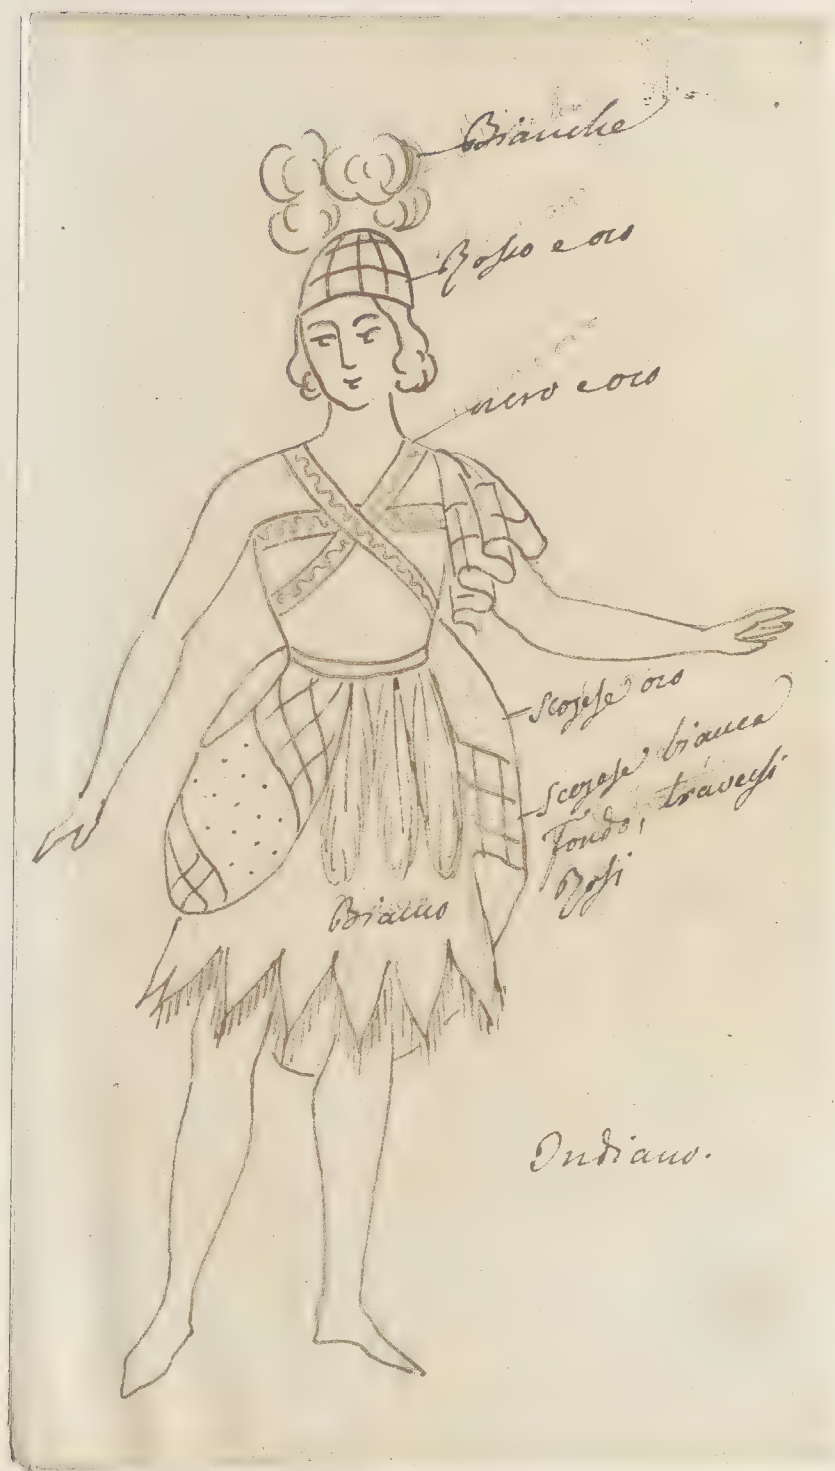 Bianche
Rosso e oro
nero e oro
scozese oro
scozese bianca
fondo, traversi
Rosi
Bianco
Indiano.